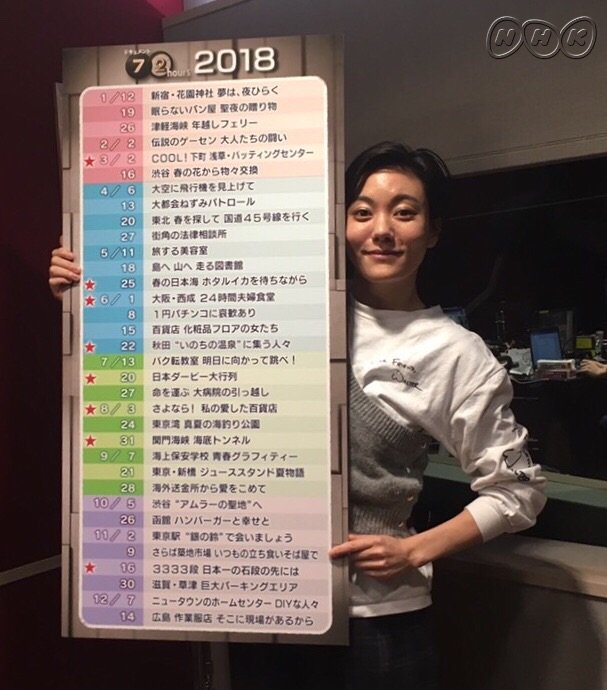 NHK
ドキュメント
72hours 2018
1/12 新宿・花園神社 夢は、夜ひらく
19 眠らないパン屋 聖夜の贈り物
26 津軽海峡 年越しフェリー
2/2 伝説のゲーセン 大人たちの闘い
★3/2 COOL!下町 浅草・バッティングセンター
16 渋谷 春の花から物々交換
4/6 大空に飛行機を見上げて
13 大都会ねずみパトロール
20 東北 春を探して 国道45号線を行く
27 街角の法律相談所
5/11 旅する美容室
18 島へ 山へ 走る図書館
★25 春の日本海 ホタルイカを待ちながら
★6/1 大阪・西成 24時間夫婦食堂
8 1円パチンコに哀歓あり
15 百貨店 化粧品フロアの女たち
★22 秋田 “いのちの温泉”に集う人々
7/13 バク転教室 明日に向かって跳べ!
★20 日本ダービー大行列
27 命を運ぶ 大病院の引っ越し
★8/3 さよなら! 私の愛した百貨店
24 東京湾 真夏の海釣り公園
★31 関門海峡 海底トンネル
9/7 海上保安学校 青春グラフィティー
21 東京・新橋 ジューススタンド夏物語
28 海外送金所から愛をこめて
10/5 渋谷 “アムラーの聖地”へ
26 函館 ハンバーガーと幸せと
11/2 東京駅 “銀の鈴”で会いましょう
9 さらば築地市場 いつもの立ち食いそば屋で
★16 3333段 日本一の石段の先には
30 滋賀・草津 巨大パーキングエリア
12/7 ニュータウンのホームセンター DIYな人々
14 広島 作業服店 そこに現場があるから